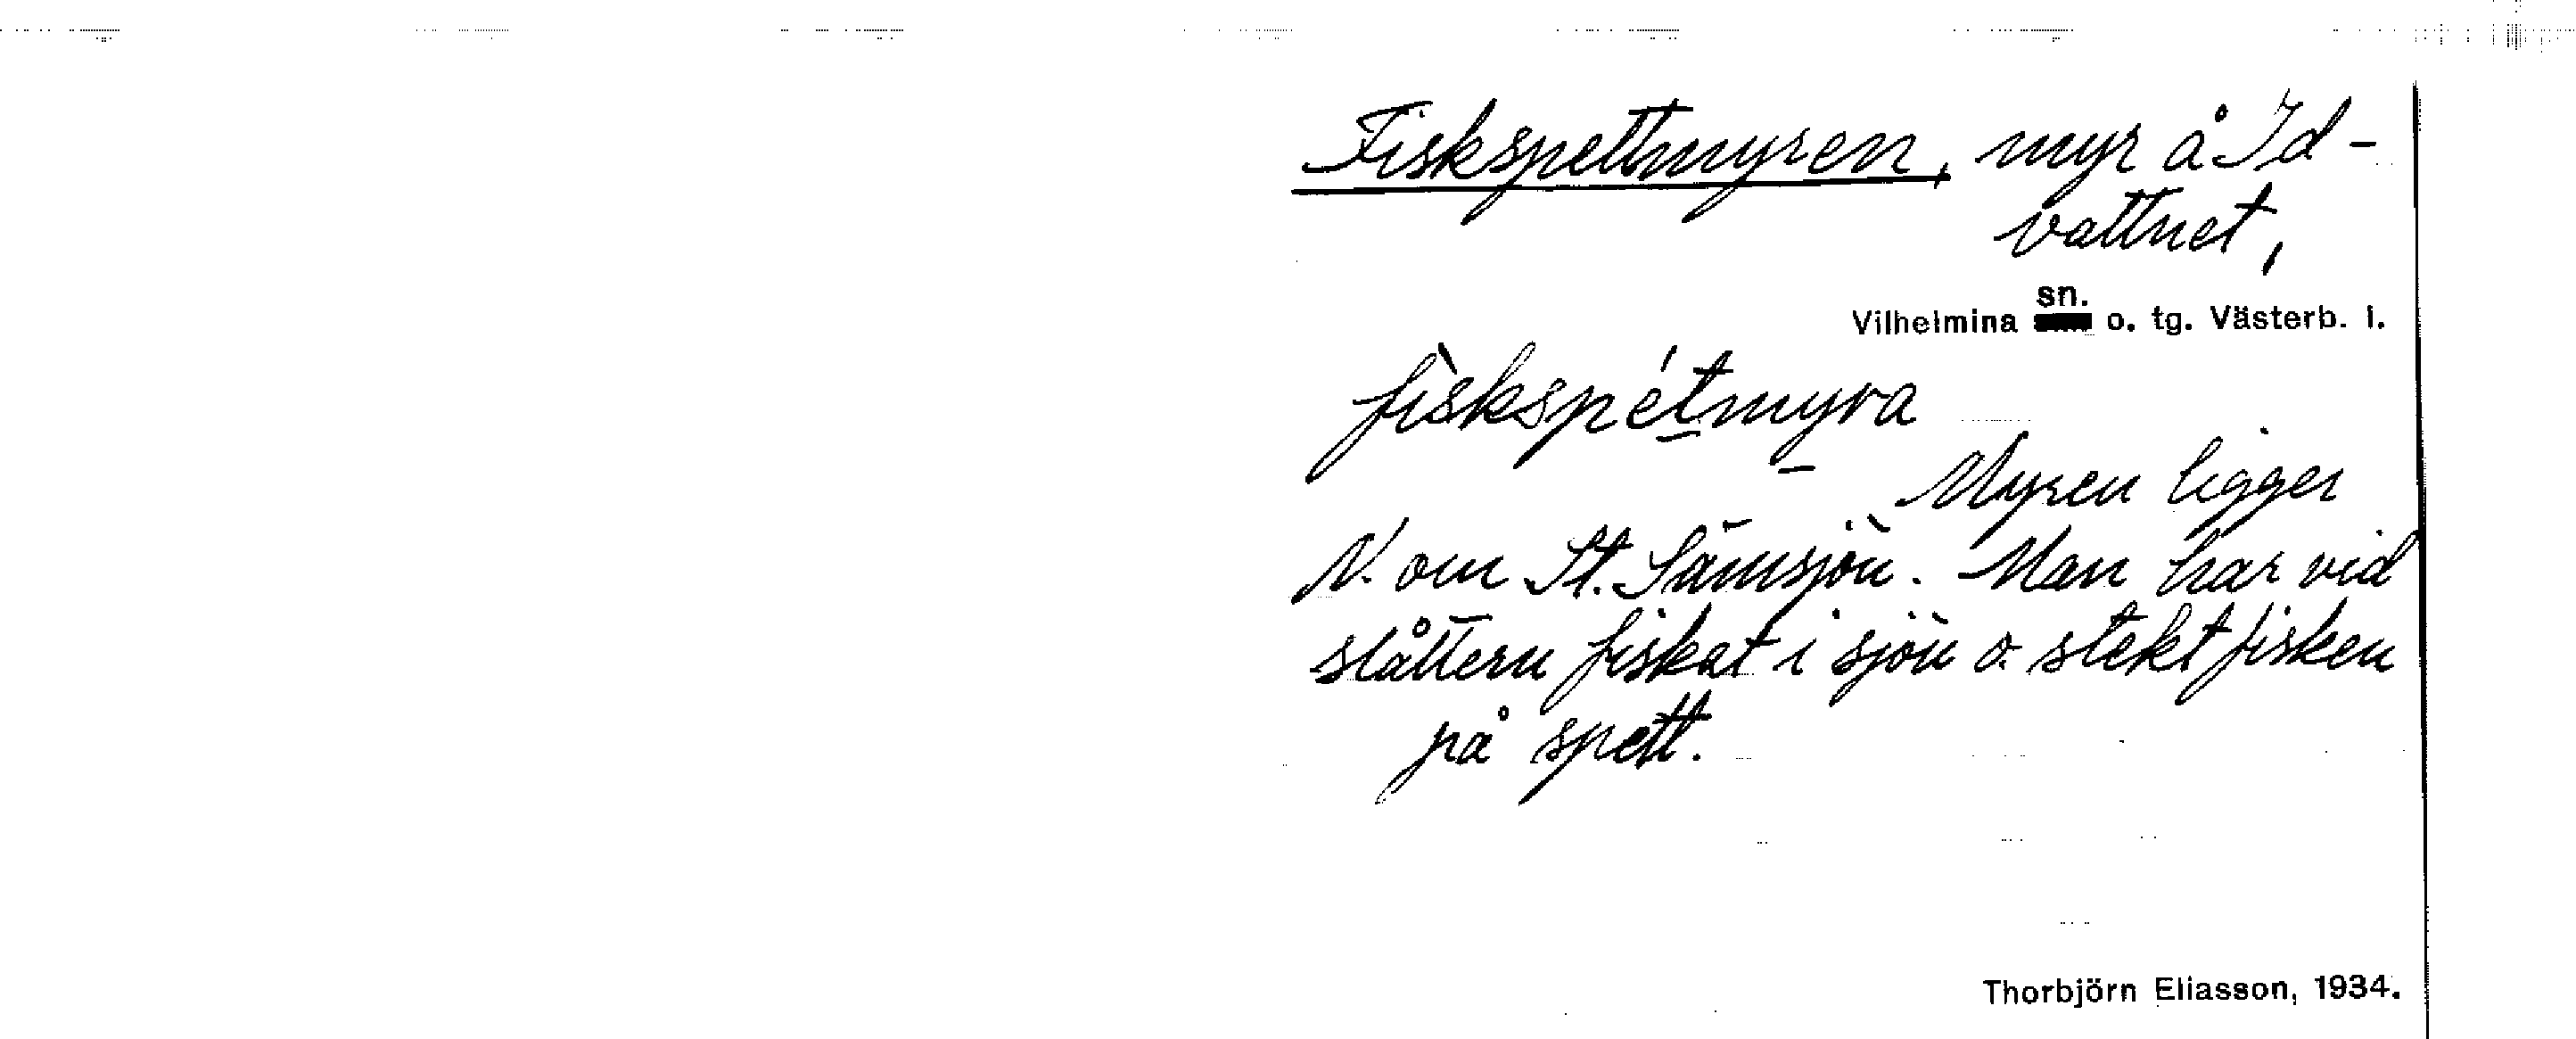 Fiskspettmyren, myr å Id-
vattnet,
Vilhelmina sn. o. tg. Västerb. l.
fìskspétmyra
Myren ligger
N. om St. Sämsjön. Man har vid
slåttern fiskat i sjön o. stekt fisken
på spett.
Thorbjörn Eliasson, 1934.